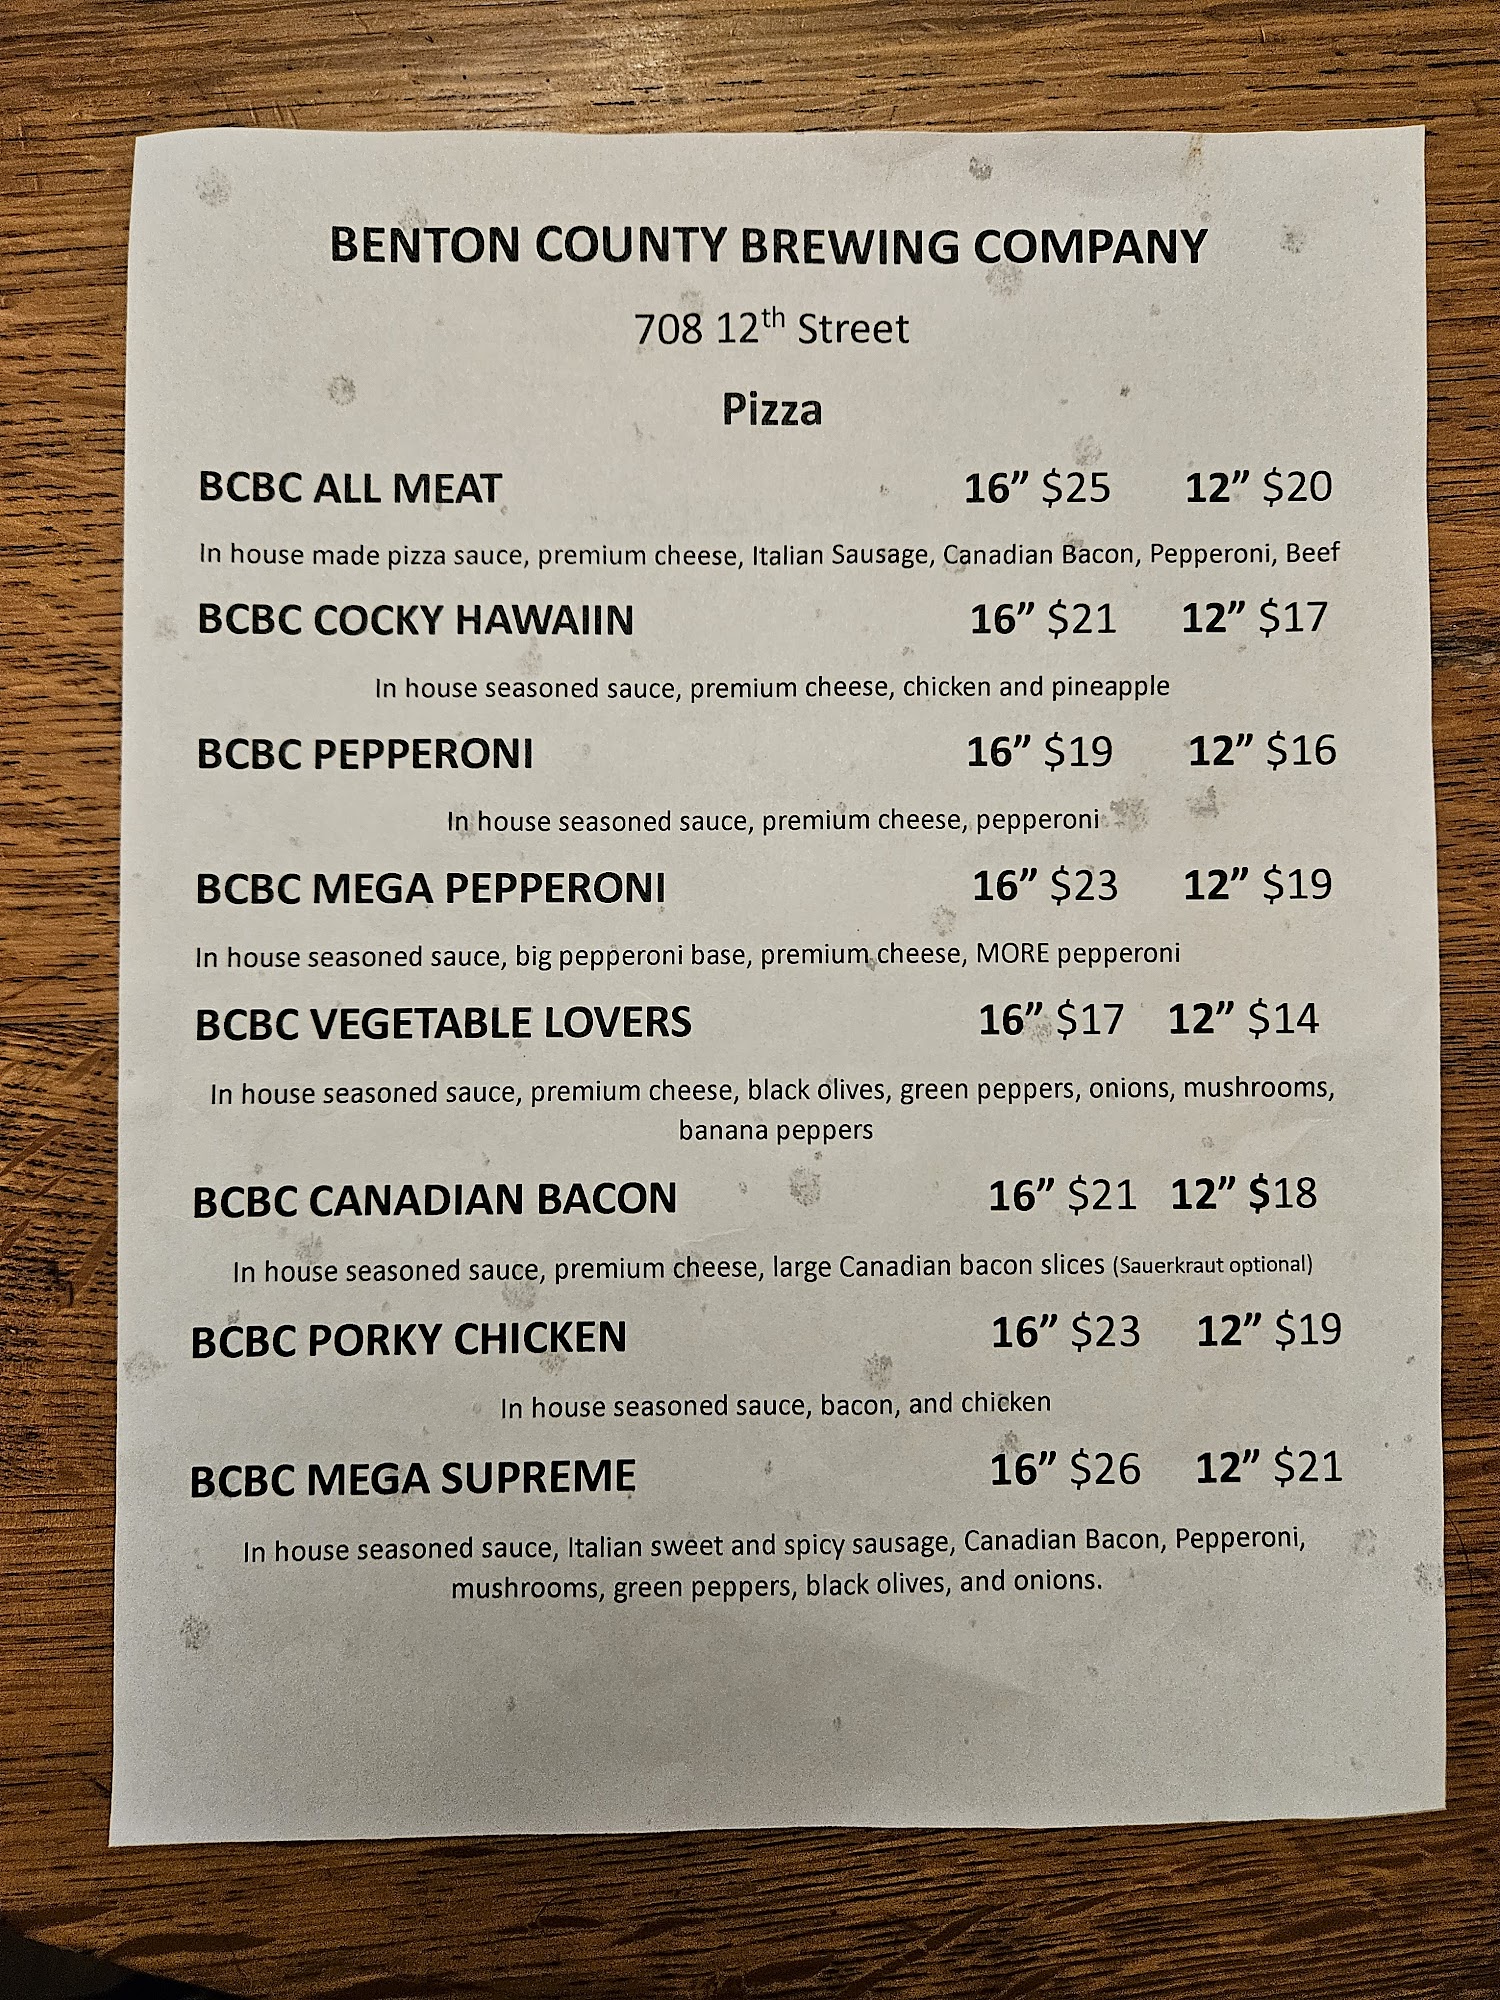 BENTON COUNTY BREWING COMPANY
708 12th Street
Pizza
BCBC ALL MEAT 16” $25 12” $20
In house made pizza sauce, premium cheese, Italian Sausage, Canadian Bacon, Pepperoni, Beef
BCBC COCKY HAWAIIN 16” $21 12” $17
In house seasoned sauce, premium cheese, chicken and pineapple
BCBC PEPPERONI 16” $19 12” $16
In house seasoned sauce, premium cheese, pepperoni
BCBC MEGA PEPPERONI 16” $23 12” $19
In house seasoned sauce, big pepperoni base, premium cheese, MORE pepperoni
BCBC VEGETABLE LOVERS 16” $17 12” $14
In house seasoned sauce, premium cheese, black olives, green peppers, onions, mushrooms,
banana peppers
BCBC CANADIAN BACON 16” $21 12” $18
In house seasoned sauce, premium cheese, large Canadian bacon slices (Sauerkraut optional)
BCBC PORKY CHICKEN 16” $23 12” $19
In house seasoned sauce, bacon, and chicken
BCBC MEGA SUPREME 16” $26 12” $21
In house seasoned sauce, Italian sweet and spicy sausage, Canadian Bacon, Pepperoni,
mushrooms, green peppers, black olives, and onions.